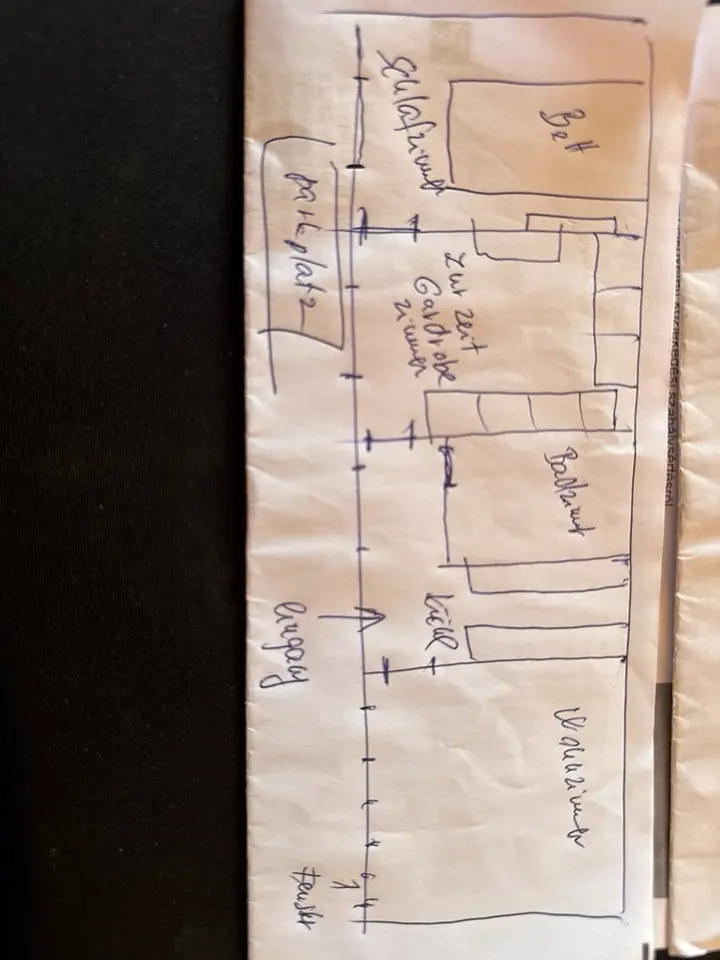 Bett
Schlafzimmer
parkplatz
zur zeit
Gardrobe
zimmer
Badzimmer
Küche
Eingang
Wohnzimmer
Fenster